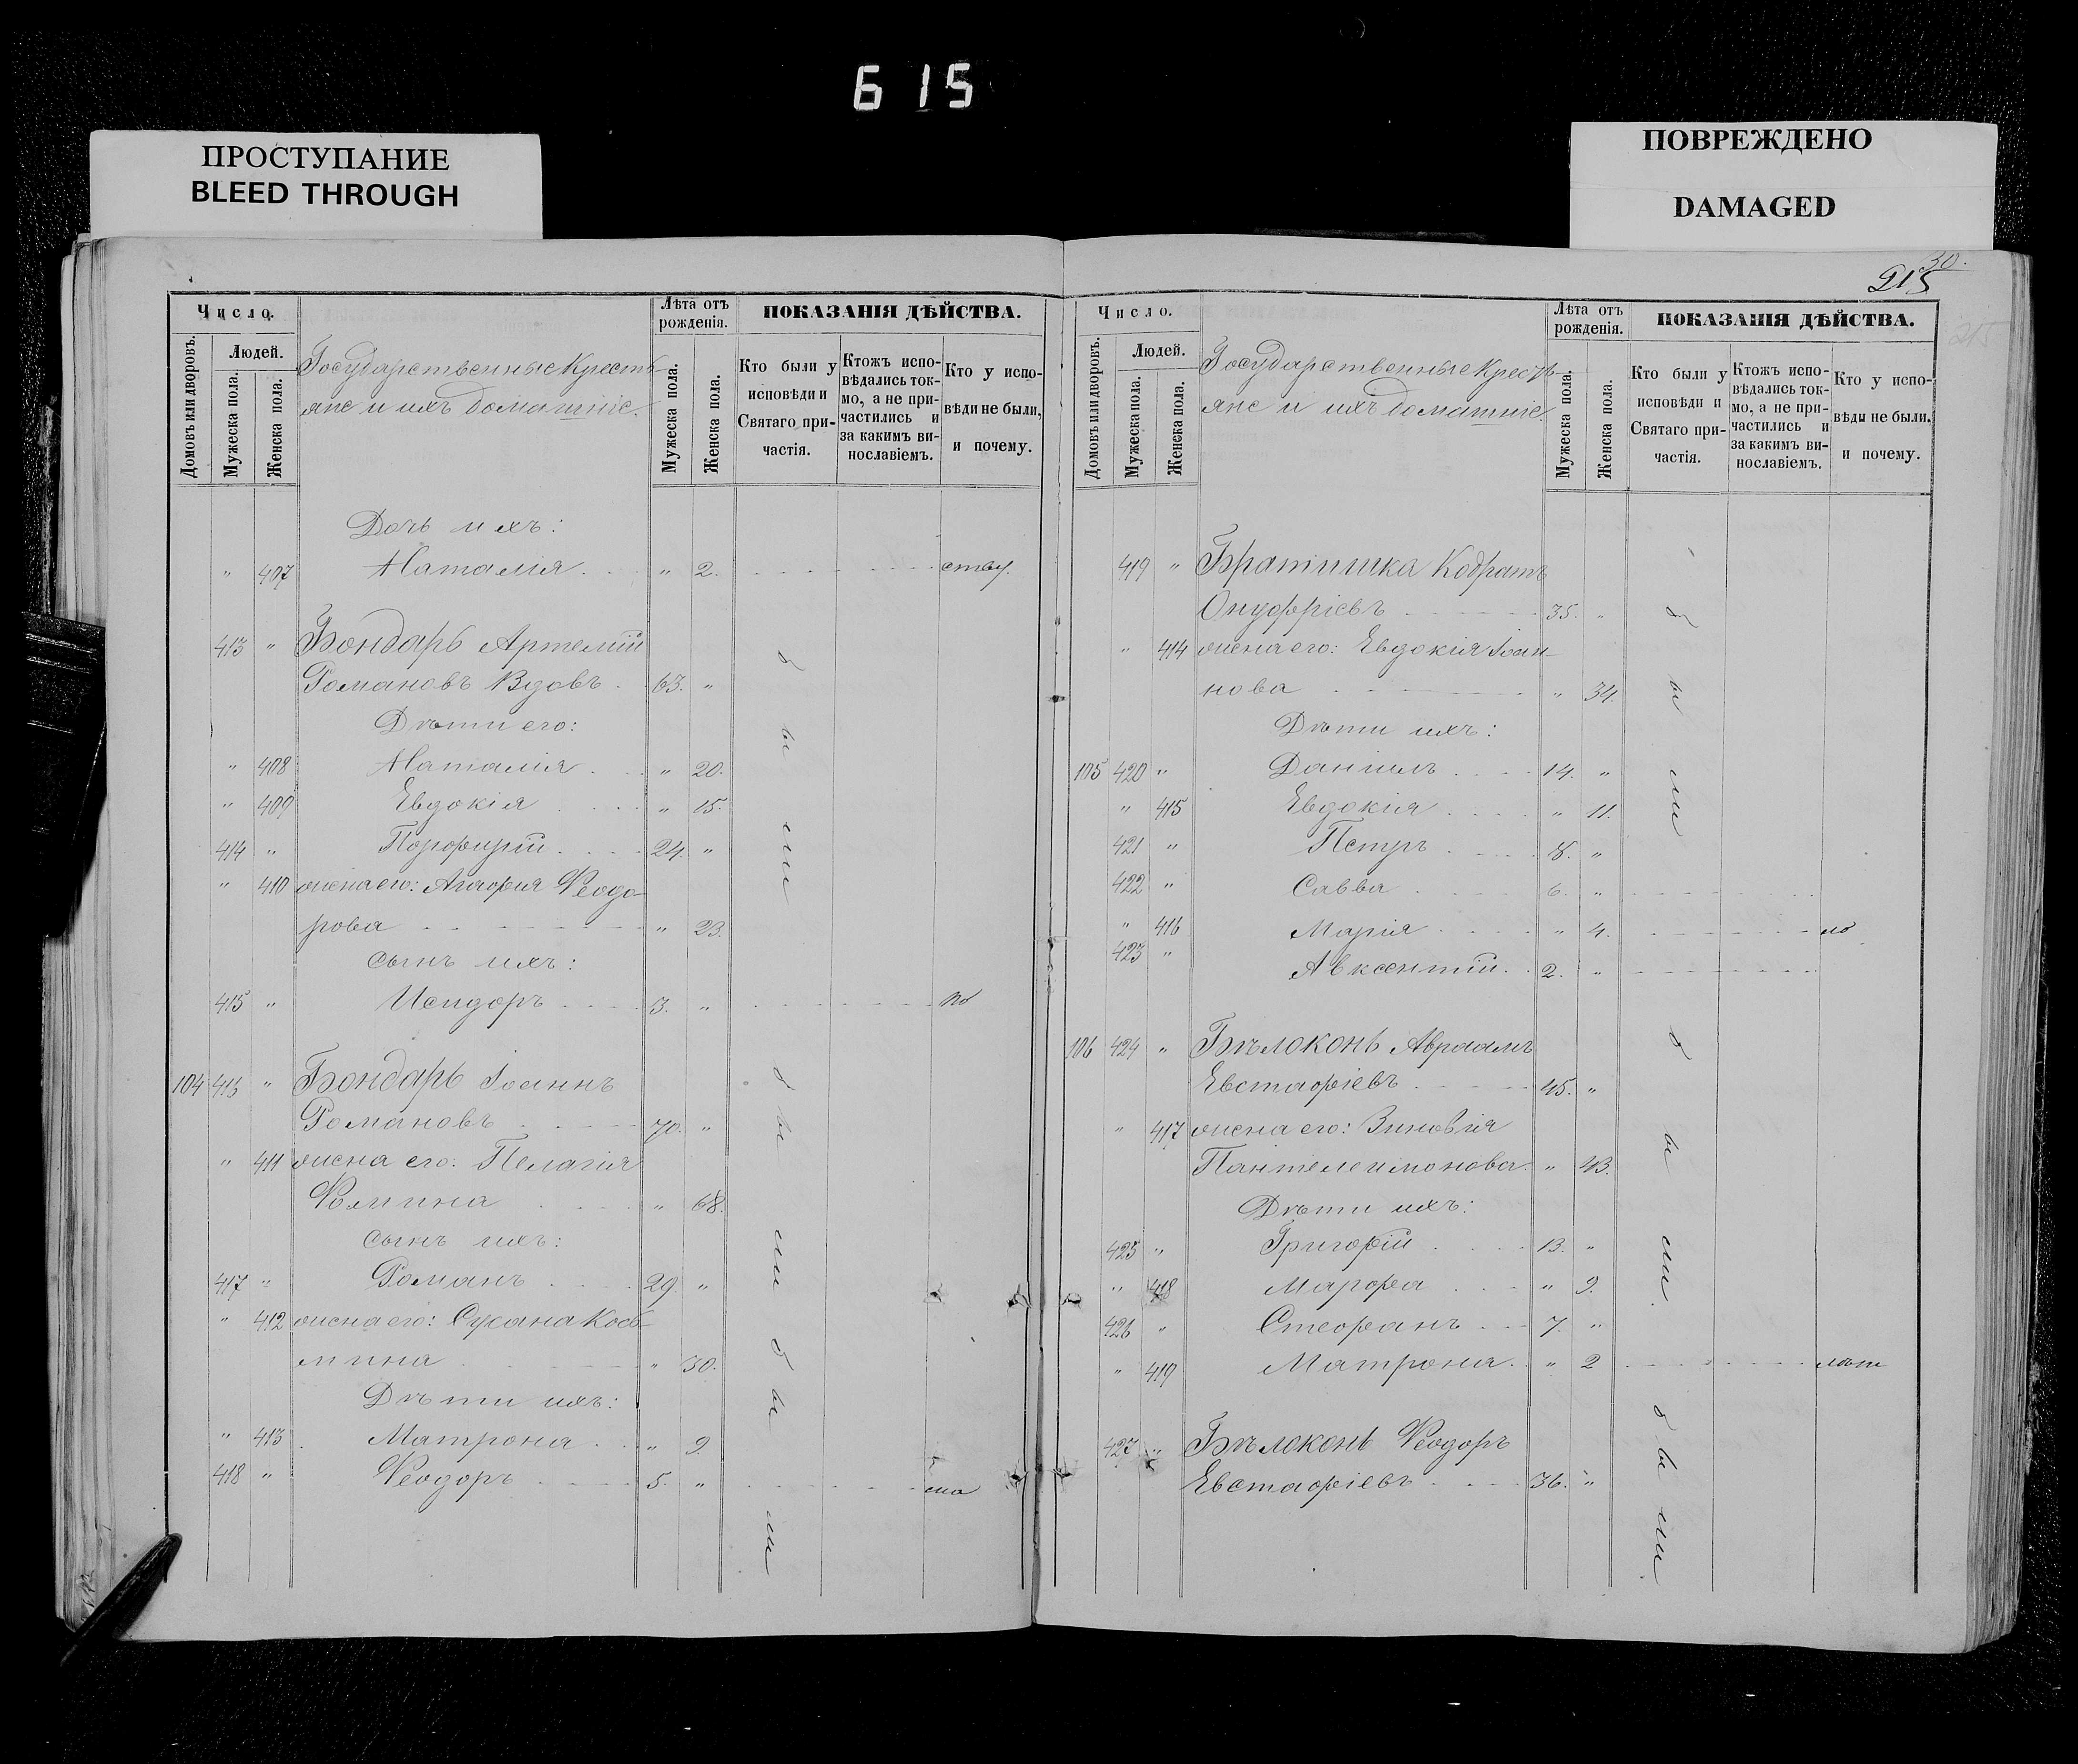 6 15
ПРОСТУПАНИЕ
BLEED THROUGH
ПОВРЕЖДЕНО
DAMAGED
Число.
Людей.
Домовъ или дворовъ.
Мужеска пола.
Женска пола.
Государственные Кресть-
яне и ихъ домашніе.
Лѣта отъ
рожденія.
Мужеска пола.
Женска пола.
ПОКАЗАНІЯ ДѢЙСТВА.
Кто были у
исповѣди и
Святаго при-
частія.
Ктожъ испо-
вѣдались ток-
мо, а не при-
частились и
за какимъ ви-
нославіемъ.
Кто у испо-
вѣди не были,
и почему.
Дочь ихъ:
" 407 Наталія " 2.
413 " Бондарь Артемій
Романовъ Вдовъ 63. "
Дѣти его:
" 408 Наталія " 20.
" 409 Евдокія " 15.
414 " Порфирій 24. "
" 410 жена его: Агафія Ѳеодо-
рова " 23.
сынъ ихъ:
415 " Исидоръ 3. " по
104 416 " Бондарь Іоаннъ
Романовъ 70. "
" 411 жена его: Пелагія
Ѳомина " 68.
сынъ ихъ:
417 " Романъ 29 "
" 412 жена его: Сусана Косъ-
мина " 30.
Дѣти ихъ:
" 413 Матрона " 9
418 " Ѳеодоръ 5. " ма
были
были
были
30.
215
Число.
Людей.
Домовъ или дворовъ.
Мужеска пола.
Женска пола.
Государственные Кресть-
яне и ихъ домашніе.
Лѣта отъ
рожденія.
Мужеска пола.
Женска пола.
ПОКАЗАНІЯ ДѢЙСТВА.
Кто были у
исповѣди и
Святаго при-
частія.
Ктожъ испо-
вѣдались ток-
мо, а не при-
частились и
за какимъ ви-
нославіемъ.
Кто у испо-
вѣди не были.
и почему.
419 " Братишка Кодратъ
Онуфріевъ 35. "
" 414 жена его: Евдокія Іоан-
нова " 34.
Дѣти ихъ:
105 420 " Даніилъ 14. "
" 415 Евдокія " 11.
421 " Петръ 8. "
422 " Савва 6. "
" 416 Марія " 4. ло
423 " Авксентій 2. "
106 424 " Бѣлоконь Авраамъ
Евстафіевъ 45. "
" 417 жена его: Зиновія
Пантелеимонова " 43.
Дѣти ихъ:
425 " Григорій 13. "
" 418 Марфа " 9.
426 " Стефанъ 7. "
" 419 Матрона " 2
427 " Бѣлоконь Ѳеодоръ
Евстафіевъ 36. "
были
были.
были.